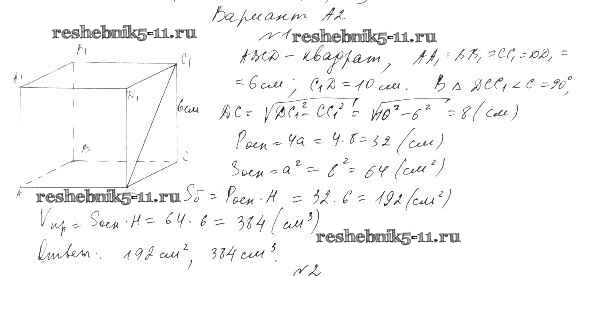 Вариант А2
reshebnik5-11.ru
№1 reshebnik5-11.ru
ABCD - квадрат, AA₁ = BB₁ = CC₁ = DD₁ =
= 6 см; C₁D = 10 см. В △ DCC₁ ∠C = 90°,
DC = √DC₁² - CC₁² = √10² - 6² = 8 (см)
Pосн = 4a = 4·8 = 32 (см)
Sосн = a² = 8² = 64 (см²)
reshebnik5-11.ru Sб = Pосн · H = 32·6 = 192 (см²)
Vпр = Sосн · H = 64·6 = 384 (см³)
reshebnik5-11.ru
Ответ: 192 см², 384 см³.
№2
A₁
B₁
C₁
D₁
6 см
B
C
A